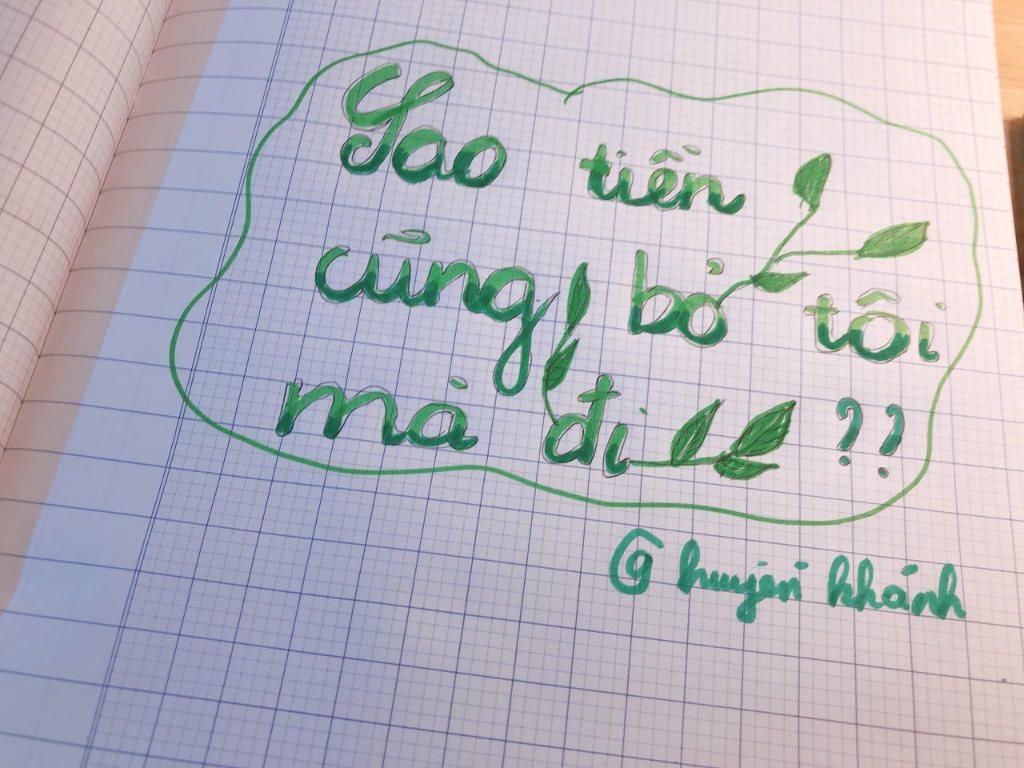 Sao tiền
cũng bỏ tôi
mà đi ??
@ huyền khánh